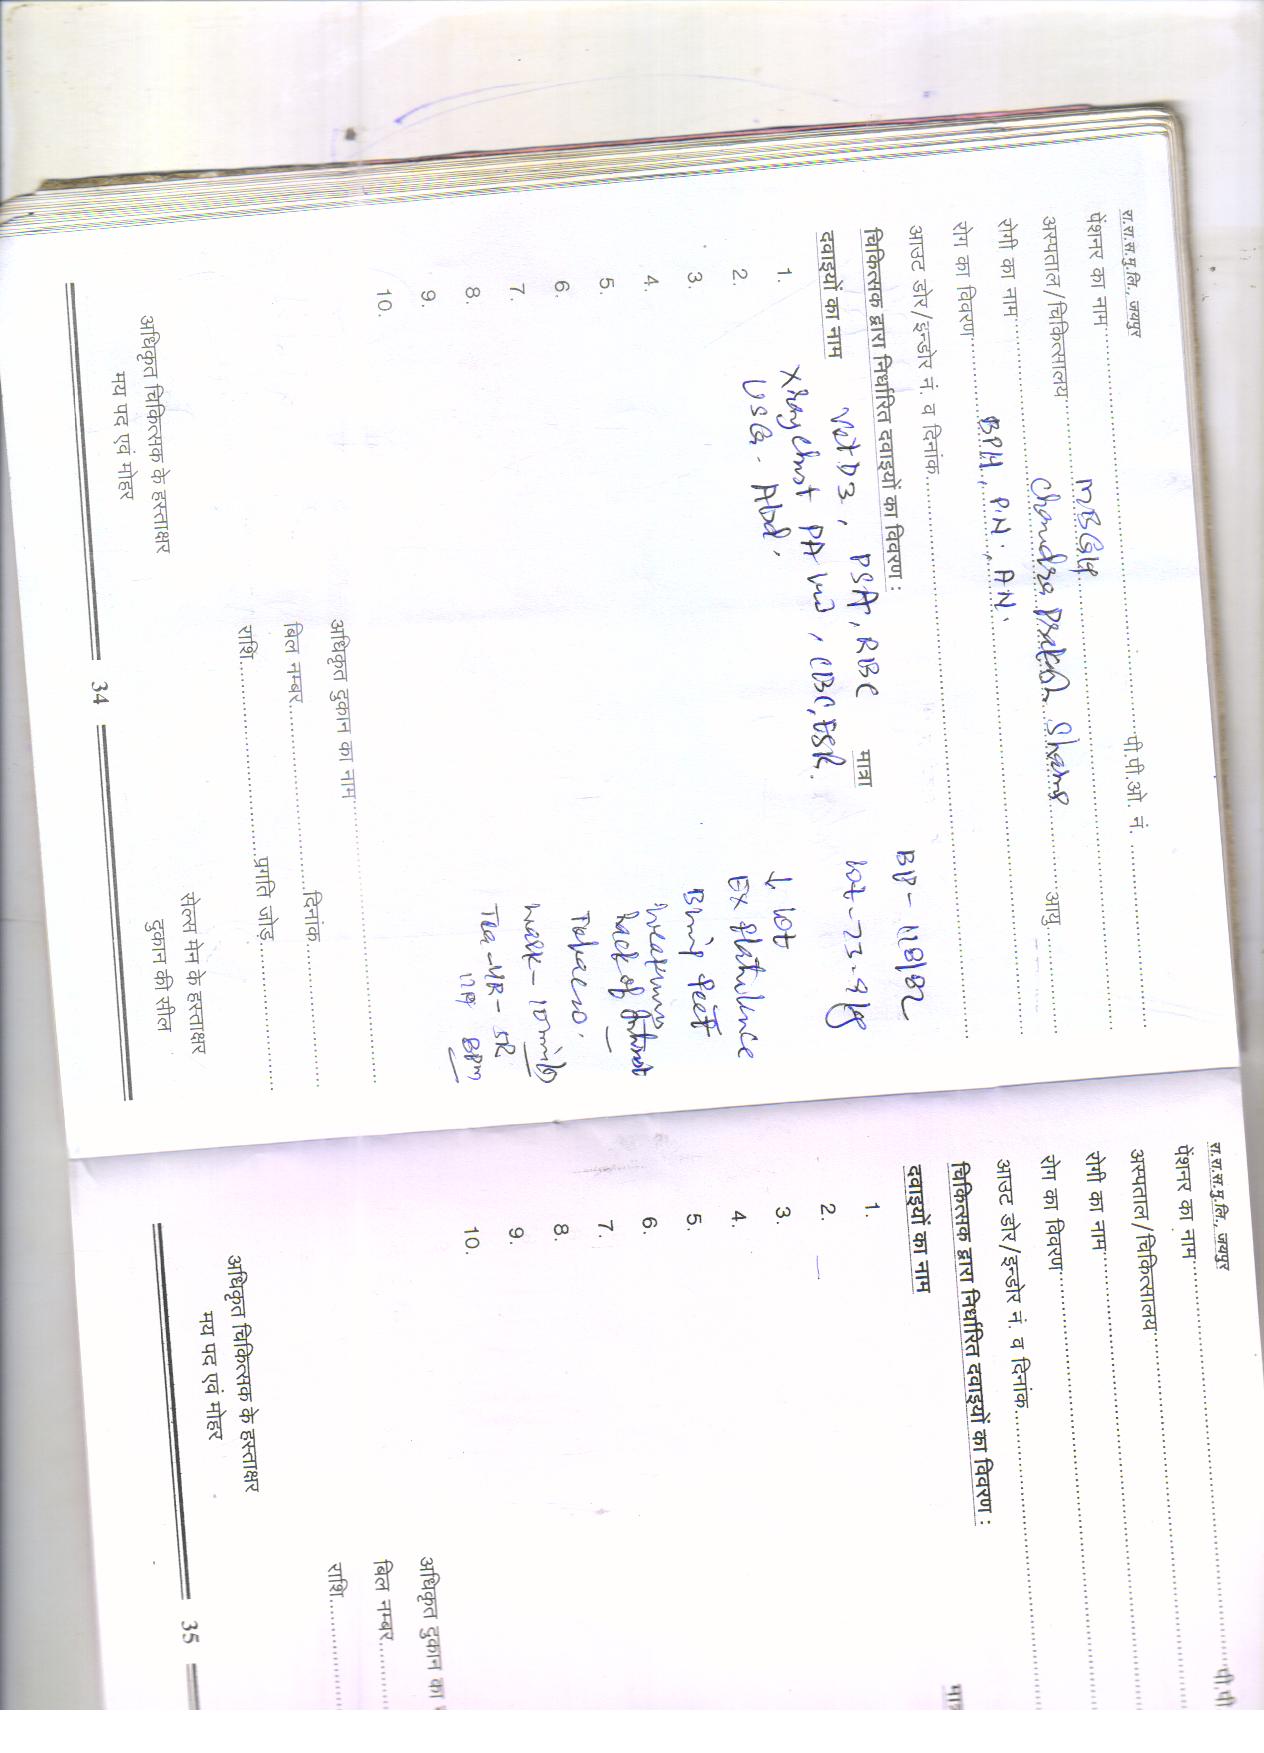 रा.रा.स.मु.लि., जयपुर
पी.पी.ओ. नं.
पेंशनर का नाम
अस्पताल/चिकित्सालय MBGH
रोगी का नाम Chandra Prakash Sharma आयु
रोग का विवरण BPH, P.N. A.N.
आउट डोर/इन्डोर नं. व दिनांक
चिकित्सक द्वारा निर्धारित दवाइयों का विवरण :
दवाइयों का नाम मात्रा
Vit D3, PSA, RBC
X ray Chest PA , CBC, ESR.
USG - Abd.
BP - 118/82
wt - 73.9 kg
↓ wt
Ex flatulence
Bring feet
weakness
lack of
Tobacco.
walk - 10 min
Tea
BPM
1.
2.
3.
4.
5.
6.
7.
8.
9.
10.
अधिकृत दुकान का नाम
बिल नम्बर दिनांक
राशि प्रगति जोड़
अधिकृत चिकित्सक के हस्ताक्षर
मय पद एवं मोहर
सेल्स मेन के हस्ताक्षर
दुकान की सील
34
रा.रा.स.मु.लि., जयपुर
पी.पी.
पेंशनर का नाम
अस्पताल/चिकित्सालय
रोगी का नाम
रोग का विवरण
आउट डोर/इन्डोर नं. व दिनांक
चिकित्सक द्वारा निर्धारित दवाइयों का विवरण :
दवाइयों का नाम
1.
2.
3.
4.
5.
6.
7.
8.
9.
10.
अधिकृत दुकान का
बिल नम्बर
राशि
अधिकृत चिकित्सक के हस्ताक्षर
मय पद एवं मोहर
35